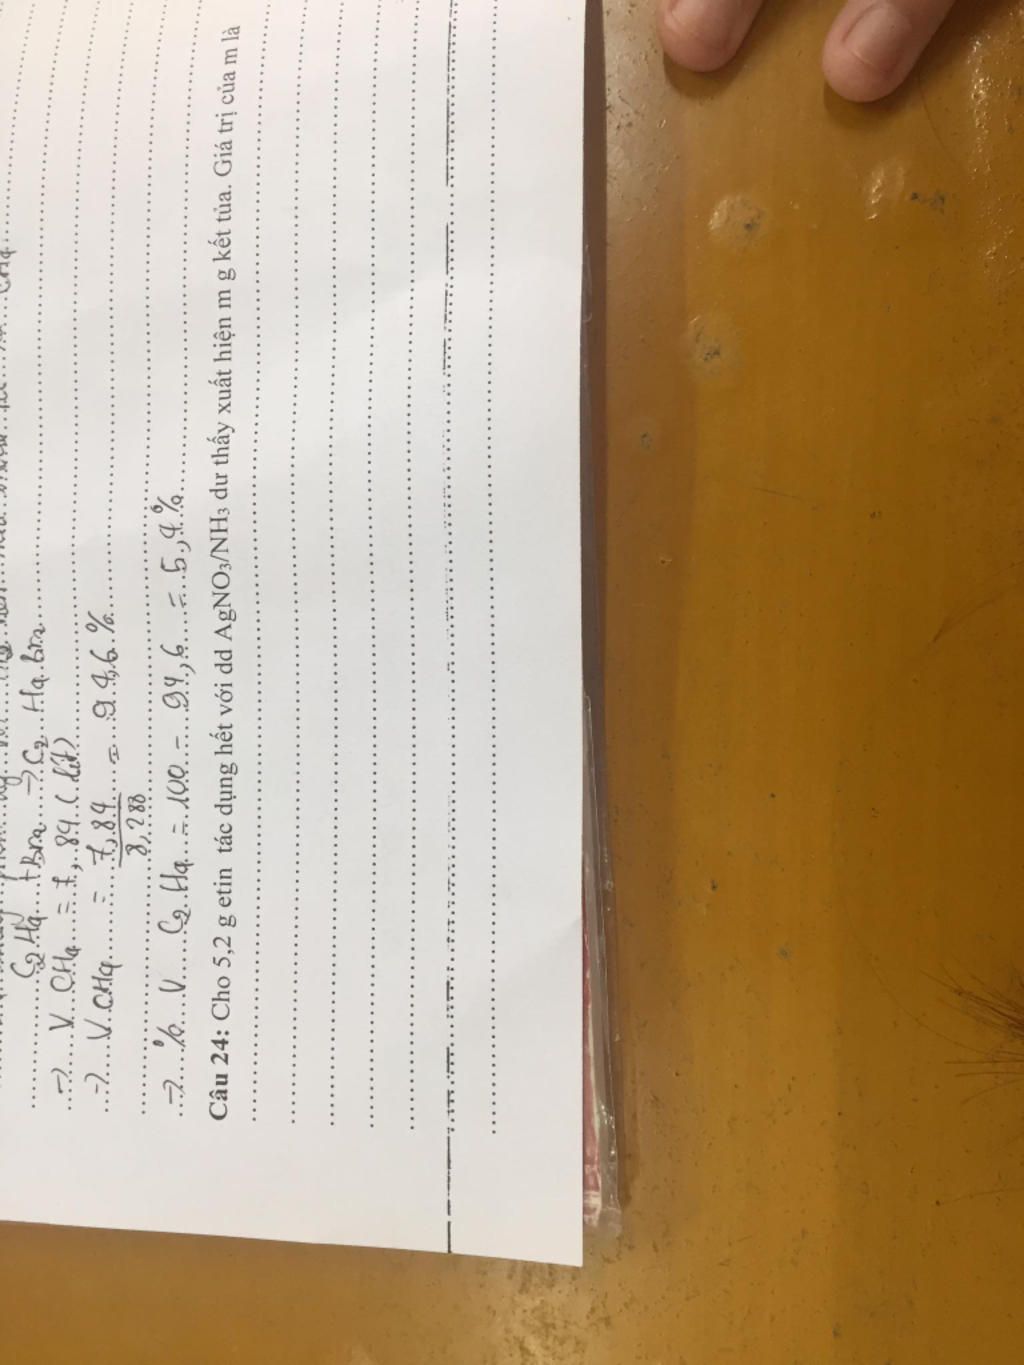 C₂H₄ + Br₂ → C₂H₄Br₂
=> V CH₄ = 7,84 (lít)
=> V CH₄ = 7,84 / 8,288 = 94,6 %
=> % V C₂H₄ = 100 - 94,6 = 5,4 %
Câu 24: Cho 5,2 g etin tác dụng hết với dd AgNO₃/NH₃ dư thấy xuất hiện m g kết tủa. Giá trị của m là